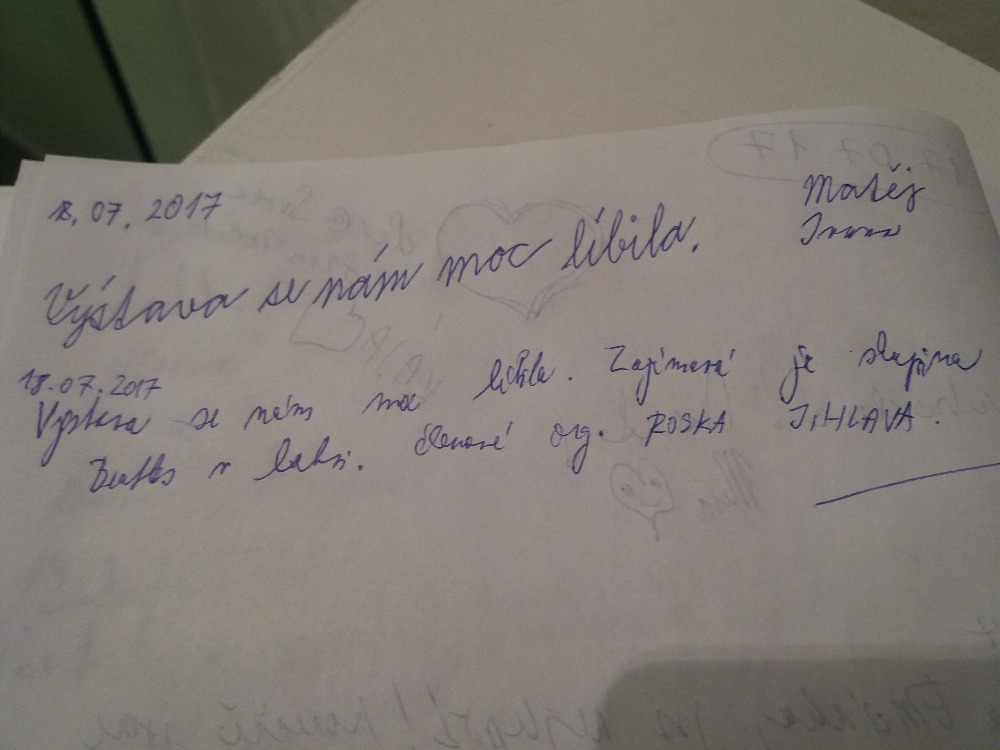 18. 07. 2017
Matěj
Ivana
Výstava se nám moc líbila.
18.07.2017
Výstava se nám moc líbila. Zajímavá je skupina
Beatles v labi. členové org. ROSKA JIHLAVA.